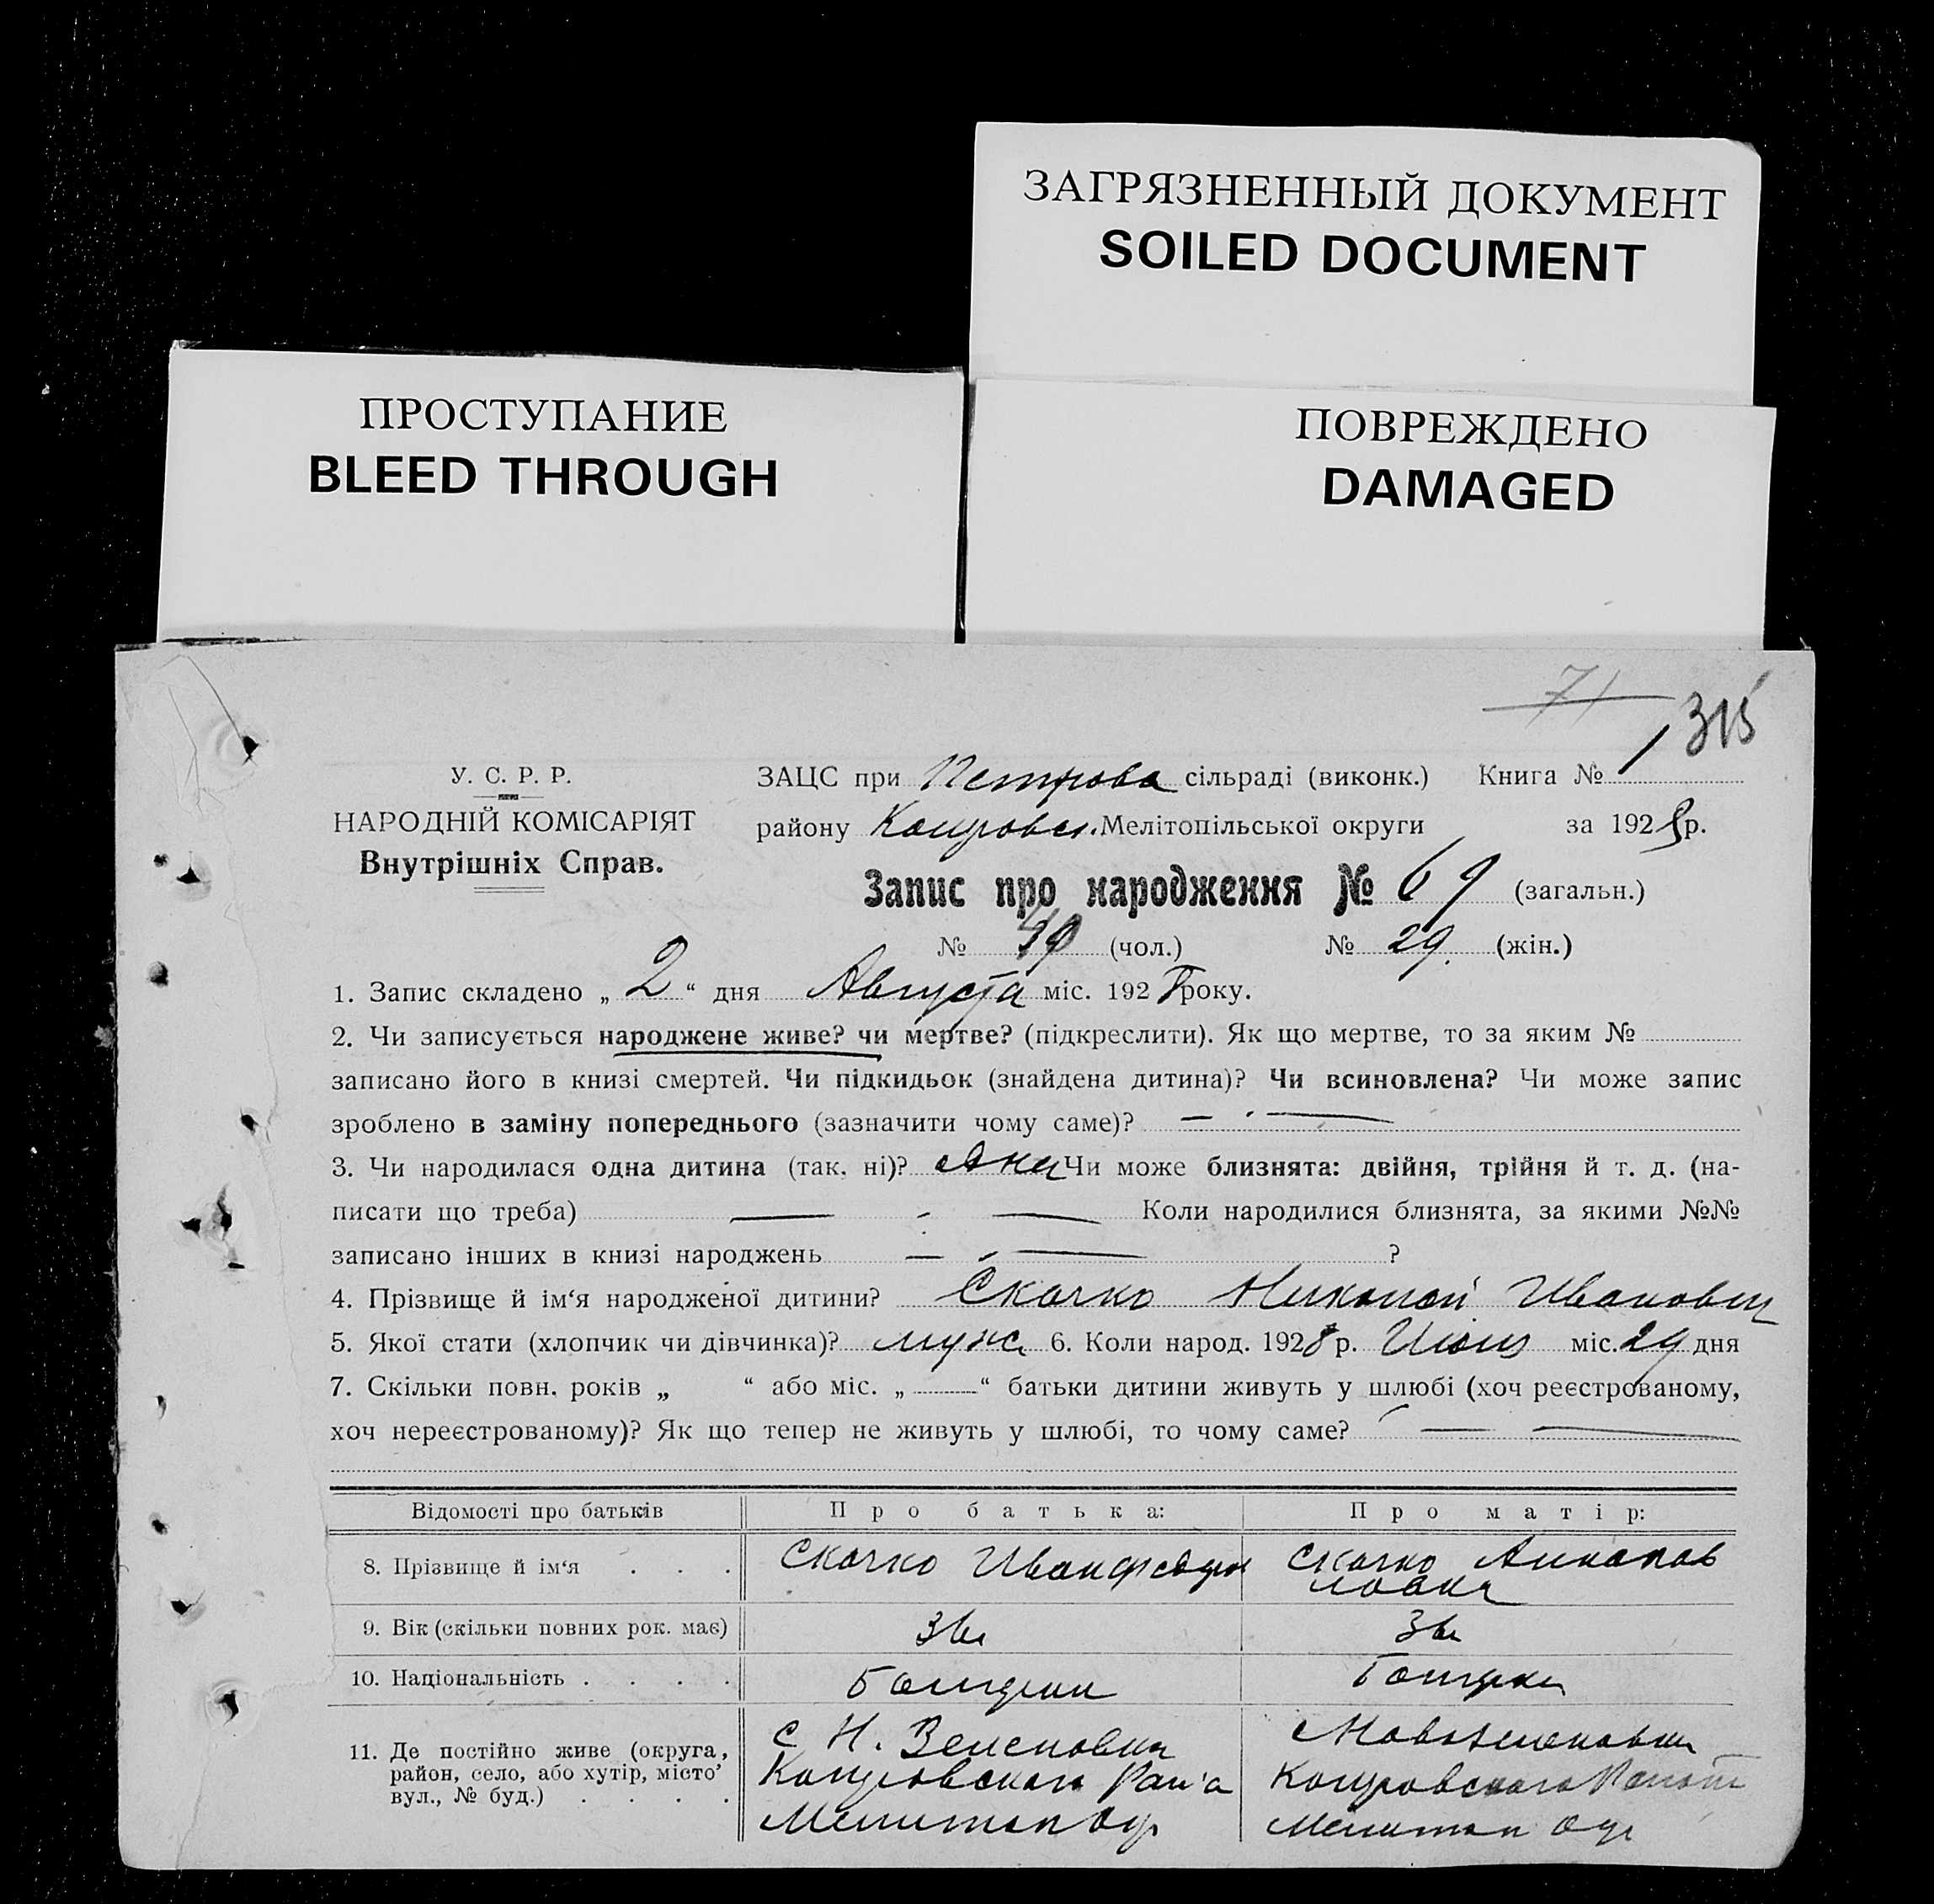 ЗАГРЯЗНЕННЫЙ ДОКУМЕНТ
SOILED DOCUMENT
ПРОСТУПАНИЕ
BLEED THROUGH
ПОВРЕЖДЕНО
DAMAGED
71
315
У. С. Р. Р.
НАРОДНІЙ КОМІСАРІЯТ
Внутрішніх Справ.
ЗАЦС при Петрова сільраді (виконк.) Книга № 1
району Мелітопільської округи за 1928 р.
Запис про народження № 69 (загальн.)
№ (чол.) № 29. (жін.)
1. Запис складено „ 2 “ дня Августа міс. 1928 року.
2. Чи записується народжене живе? чи мертве? (підкреслити). Як що мертве, то за яким №
записано його в книзі смертей. Чи підкидьок (знайдена дитина)? Чи всиновлена? Чи може запис
зроблено в заміну попереднього (зазначити чому саме)? —
3. Чи народилася одна дитина (так, ні)? Чи може близнята: двійня, трійня й т. д. (на-
писати що треба) — — Коли народилися близнята, за якими №№
записано інших в книзі народжень — — ?
4. Прізвище й ім‘я народженої дитини? Скачко Николай Иванович
5. Якої стати (хлопчик чи дівчинка)? муж. 6. Коли народ. 1928 р. міс. 29 дня
7. Скільки повн. років „ “ або міс. „ “ батьки дитини живуть у шлюбі (хоч реєстрованому,
хоч нереєстрованому)? Як що тепер не живуть у шлюбі, то чому саме? — —
Відомості про батьків Про батька: Про матір:
8. Прізвище й ім‘я . . . Скачко Иван Скачко Анна Пав
ловна
9. Вік (скільки повних рок. має)
10. Національність . . . .
11. Де постійно живе (округа,
район, село, або хутір, місто’
вул., № буд.) . . . .
с Н. Зеленовка